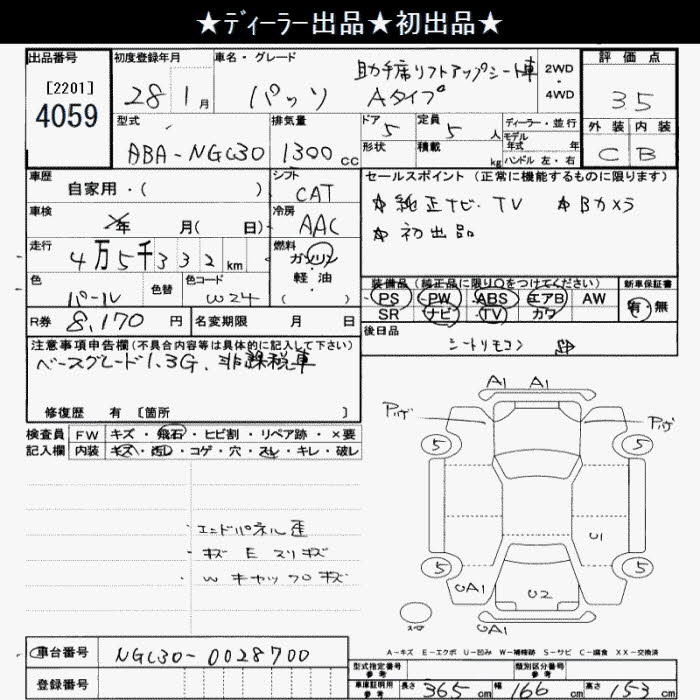 ★ディーラー出品★初出品★
出品番号 初度登録年月 車名・グレード 評価点
[2201]
4059
28 1月 パッソ 助手席リフトアップシート車 Aタイプ 2WD・4WD 35
型式 排気量 ドア 定員 ディーラー・並行 外装 内装
ABA-NGC30 1300cc 5 5人 モデル年式 年 C B
形状 積載 kg ハンドル 左・右
車歴 シフト セールスポイント(正常に機能するものに限ります)
自家用・( ) CAT
車検 冷房 ☆純正ナビ・TV ☆Bカメラ
年 月( 日) AAC ☆初出品
走行 燃料
4万5千332km ガソリン・軽油( )
色 色替 色コード 装備品(純正品に限り○をつけてください) 新車保証書
パール W24 PS PW ABS エアB AW 有・無
SR ナビ TV カワ
R券 8,170円 名変期限 月 日 後日品
シートリモコン
注意事項申告欄(不具合内容等は具体的に記入して下さい)
ベースグレード1.3G、非課税車
修復歴 有 [箇所 ]
検査員 FW キズ・飛石・ヒビ割・リペア跡・×要
記入欄 内装 キズ・汚れ・コゲ・穴・スレ・キレ・破レ
A1 A1
5 5
・エンドパネル歪
・キズ E スリキズ
・Wキャップキズ
U1
5 5
UA1 U2
スペア UA1
A-キズ E-エクボ U-凹み W-補修跡 S-サビ C-腐食 XX-交換済
車台番号 NGC30-0028700
登録番号
型式指定番号 参考 類別区分番号 参考
車庫証明用 参考 長さ 365cm 幅 166cm 高さ 153cm